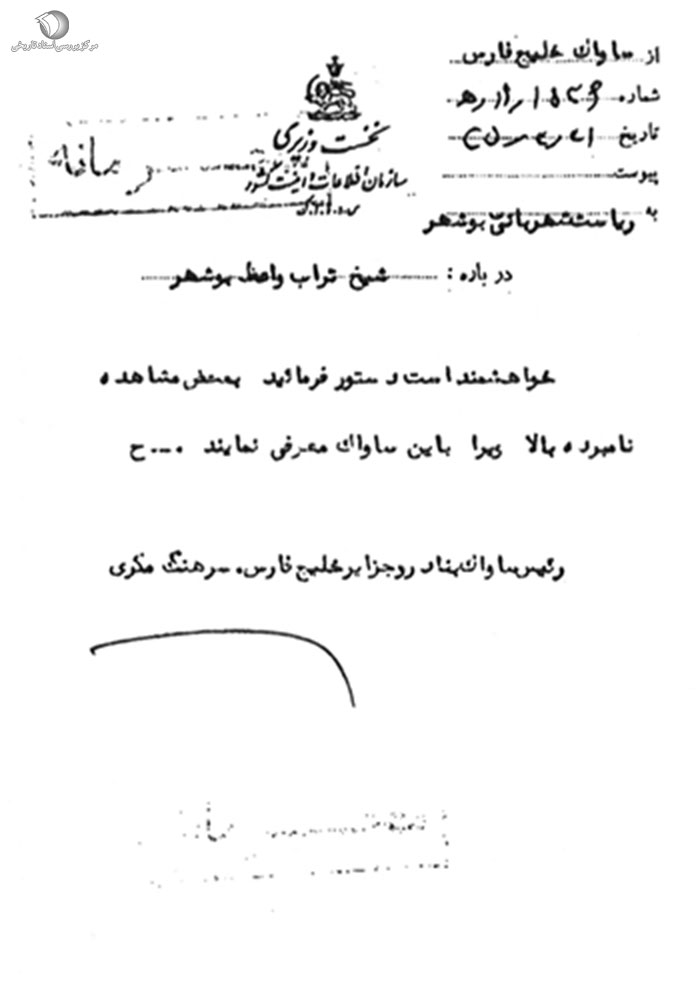 مرکز بررسی اسناد تاریخی
از ساواک خلیج فارس
شماره
تاریخ
پیوست
نخست وزیری
سازمان اطلاعات و امنیت کشور
س.ا.و.ا.ک
به ریاست شهربانی بوشهر
درباره : شیخ تراب واعظ بوشهر
خواهشمند است دستور فرمائید بمحض مشاهده
نامبرده بالا ویرا باین ساواک معرفی نمایند .-.. ح
رئیس ساواک بنادر و جزایر خلیج فارس. سرهنگ مکری